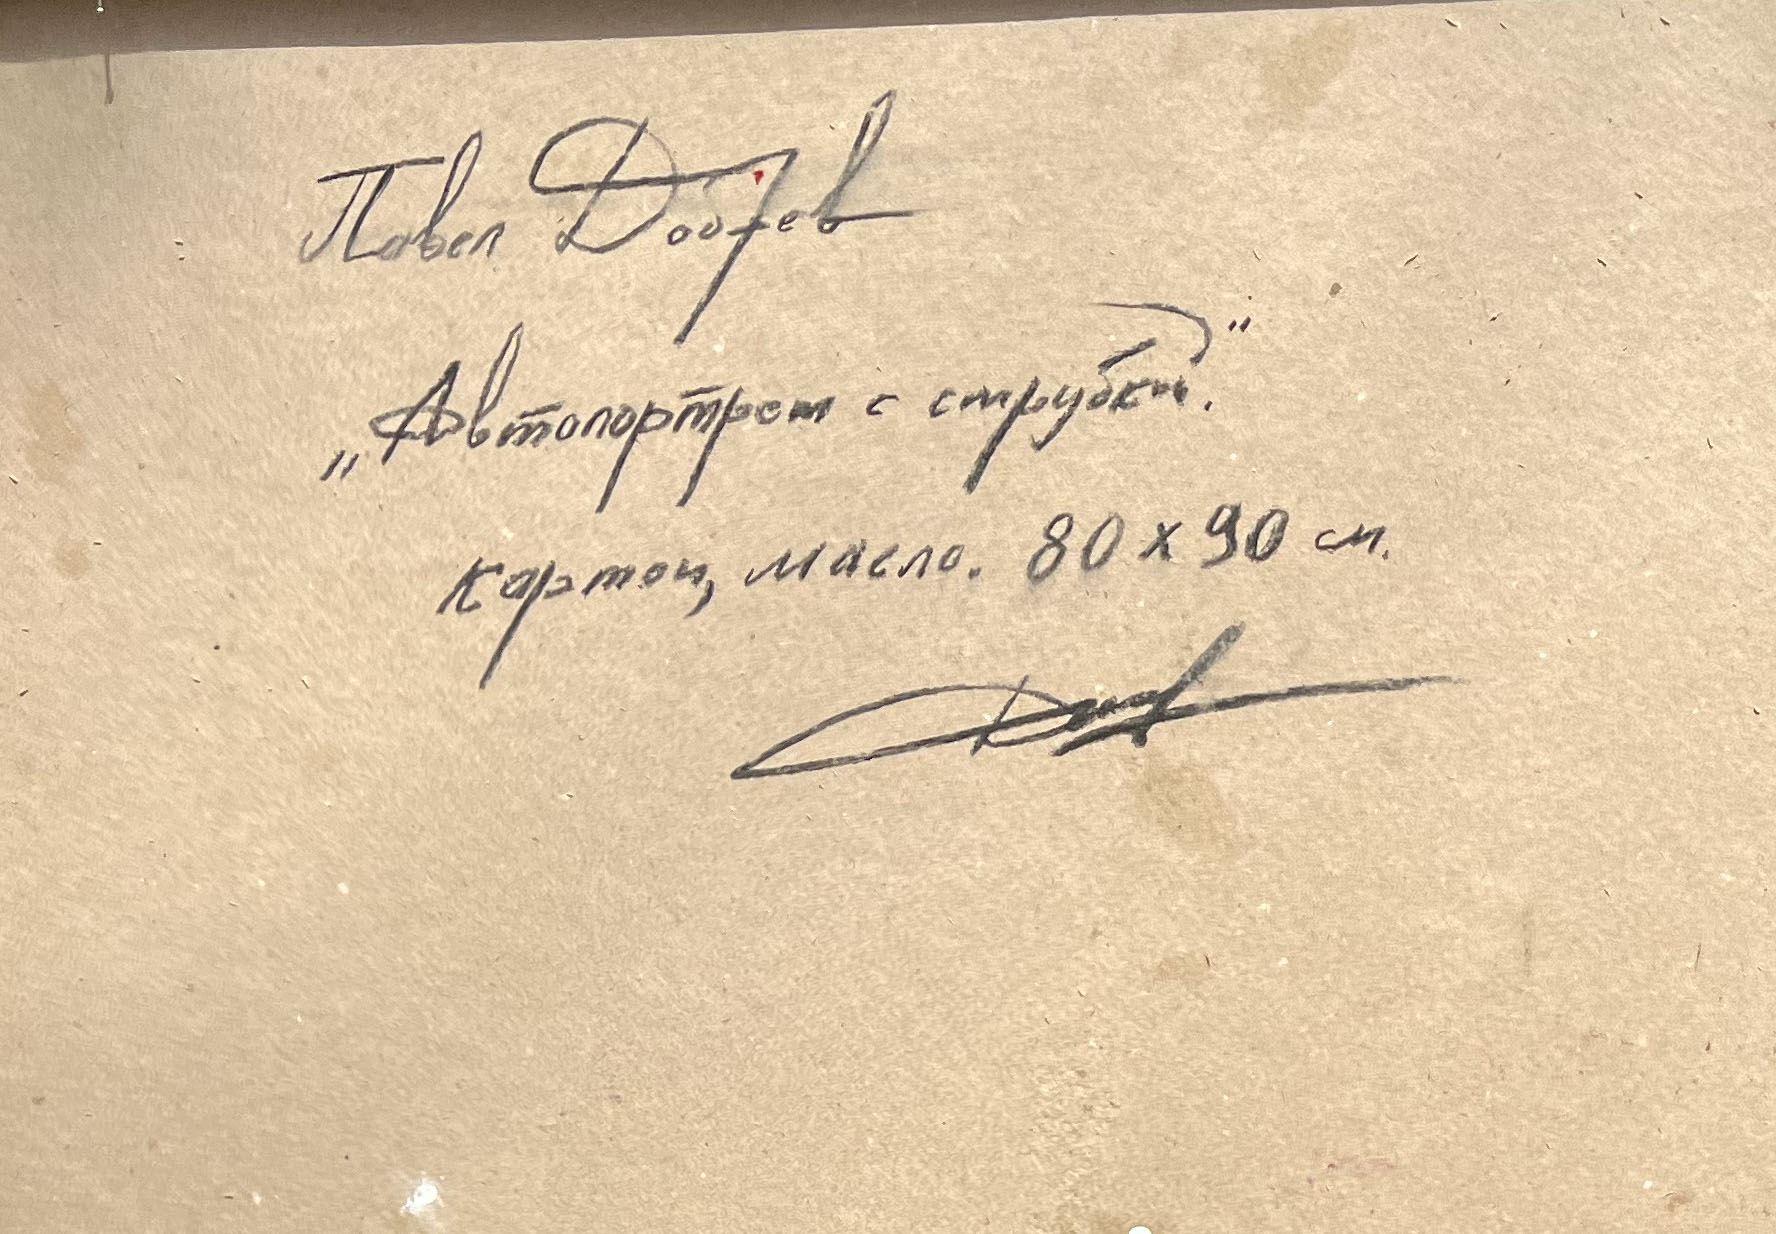 Павел
„Автопортрет с струбкй."
картон, масло. 80 х 90 см.